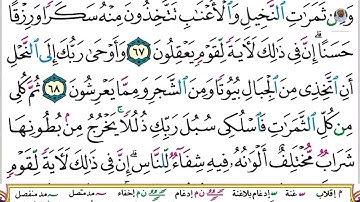 مِن ثَمَرَٰتِ ٱلنَّخِيلِ وَٱلْأَعْنَٰبِ تَتَّخِذُونَ مِنْهُ سَكَرًا وَرِزْقًا
حَسَنًا ۗ إِنَّ فِى ذَٰلِكَ لَءَايَةً لِّقَوْمٍ يَعْقِلُونَ ٦٧ وَأَوْحَىٰ رَبُّكَ إِلَى ٱلنَّحْلِ
أَنِ ٱتَّخِذِى مِنَ ٱلْجِبَالِ بُيُوتًا وَمِنَ ٱلشَّجَرِ وَمِمَّا يَعْرِشُونَ ٦٨ ثُمَّ كُلِى
مِن كُلِّ ٱلثَّمَرَٰتِ فَٱسْلُكِى سُبُلَ رَبِّكِ ذُلُلًا ۚ يَخْرُجُ مِنۢ بُطُونِهَا
شَرَابٌ مُّخْتَلِفٌ أَلْوَٰنُهُۥ فِيهِ شِفَآءٌ لِّلنَّاسِ ۗ إِنَّ فِى ذَٰلِكَ لَءَايَةً لِّقَوْمٍ
م إقلاب غنة إدغام بلاغنة ن م إدغام ن م إخفاء مد متصل مد منفصل